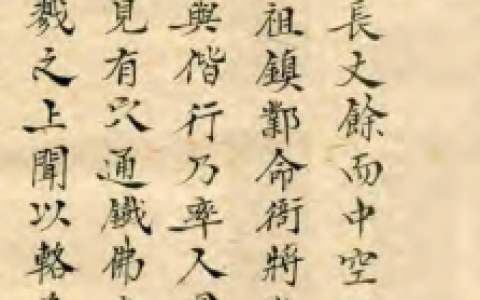 長丈餘而中空
祖鎮鄴命衙將
與偕行乃率人
見有穴通鐵佛
戮之上聞以輅